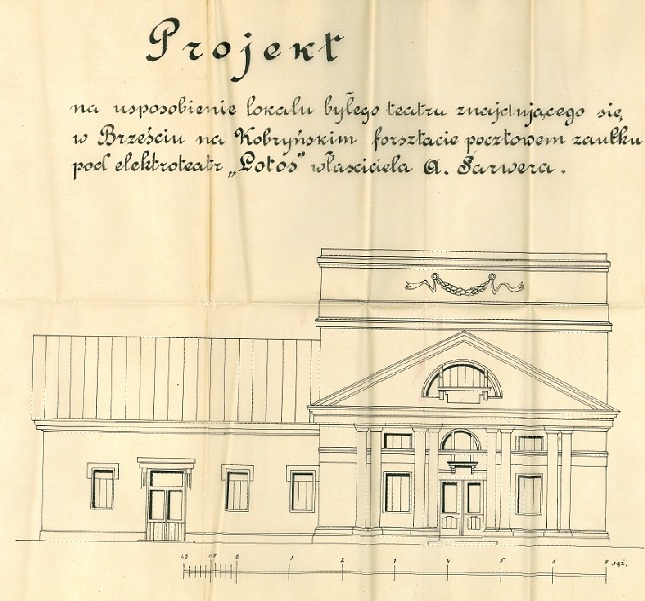 Projekt
na usposobienie lokalu byłego teatru znajdującego się
w Brześciu na Kobryńskim forsztacie pocztowem zaułku
pod elektroteatr „Lotos" właściciela A. Sarwera.
1 2 3 4 5 6 7 sąż.